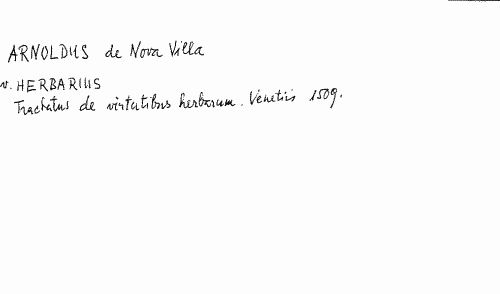 ARNOLDUS de Nova Villa
v. HERBARIUS
Tractatus de virtutibus herbarum. Venetiis 1509.